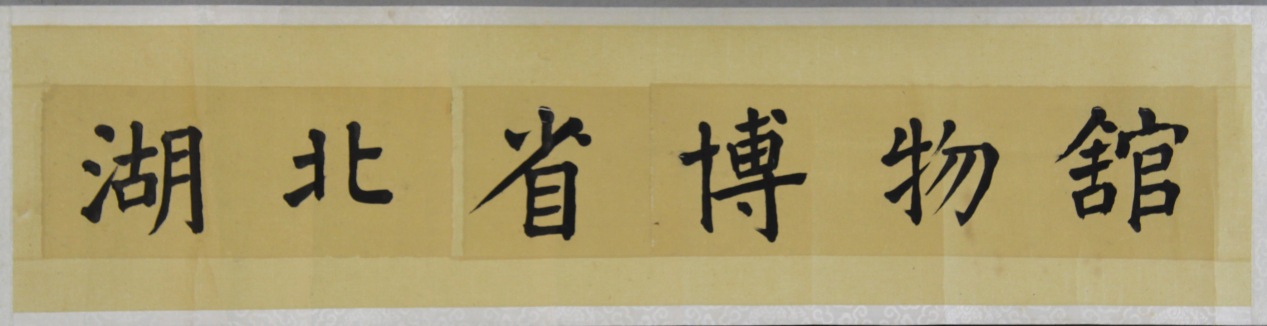 湖北省博物舘